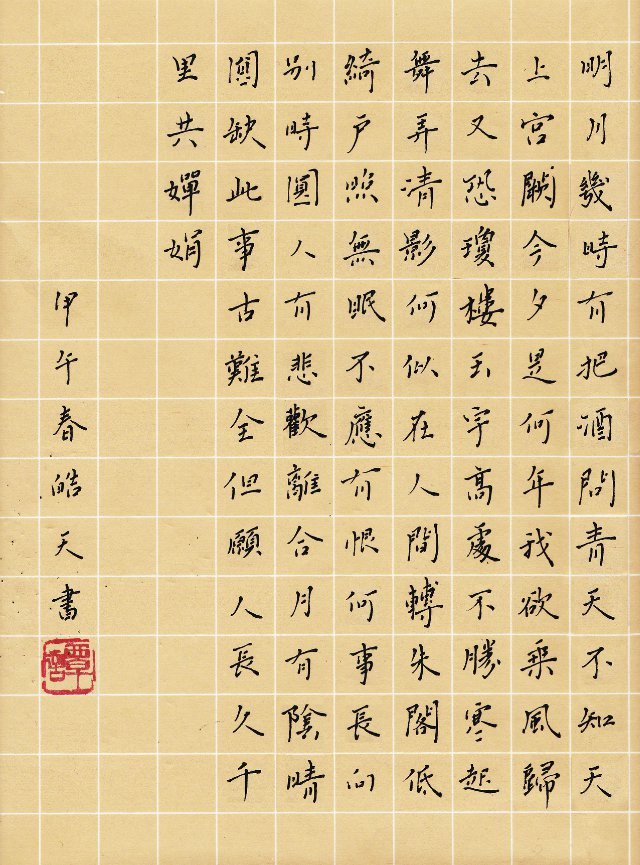 明月幾時有把酒問青天不知天
上宮闕今夕是何年我欲乘風歸
去又恐瓊樓玉宇高處不勝寒起
舞弄清影何似在人間轉朱閣低
綺戶照無眠不應有恨何事長向
別時圓人有悲歡離合月有陰晴
圓缺此事古難全但願人長久千
里共嬋娟
甲午春皓天書